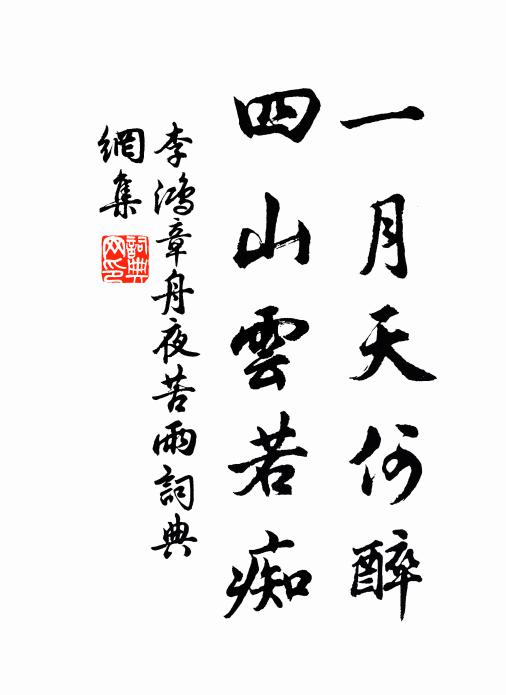 一月天何醉
四山雲若痴
李鴻章舟夜苦雨詞典
網集
詞典
网印